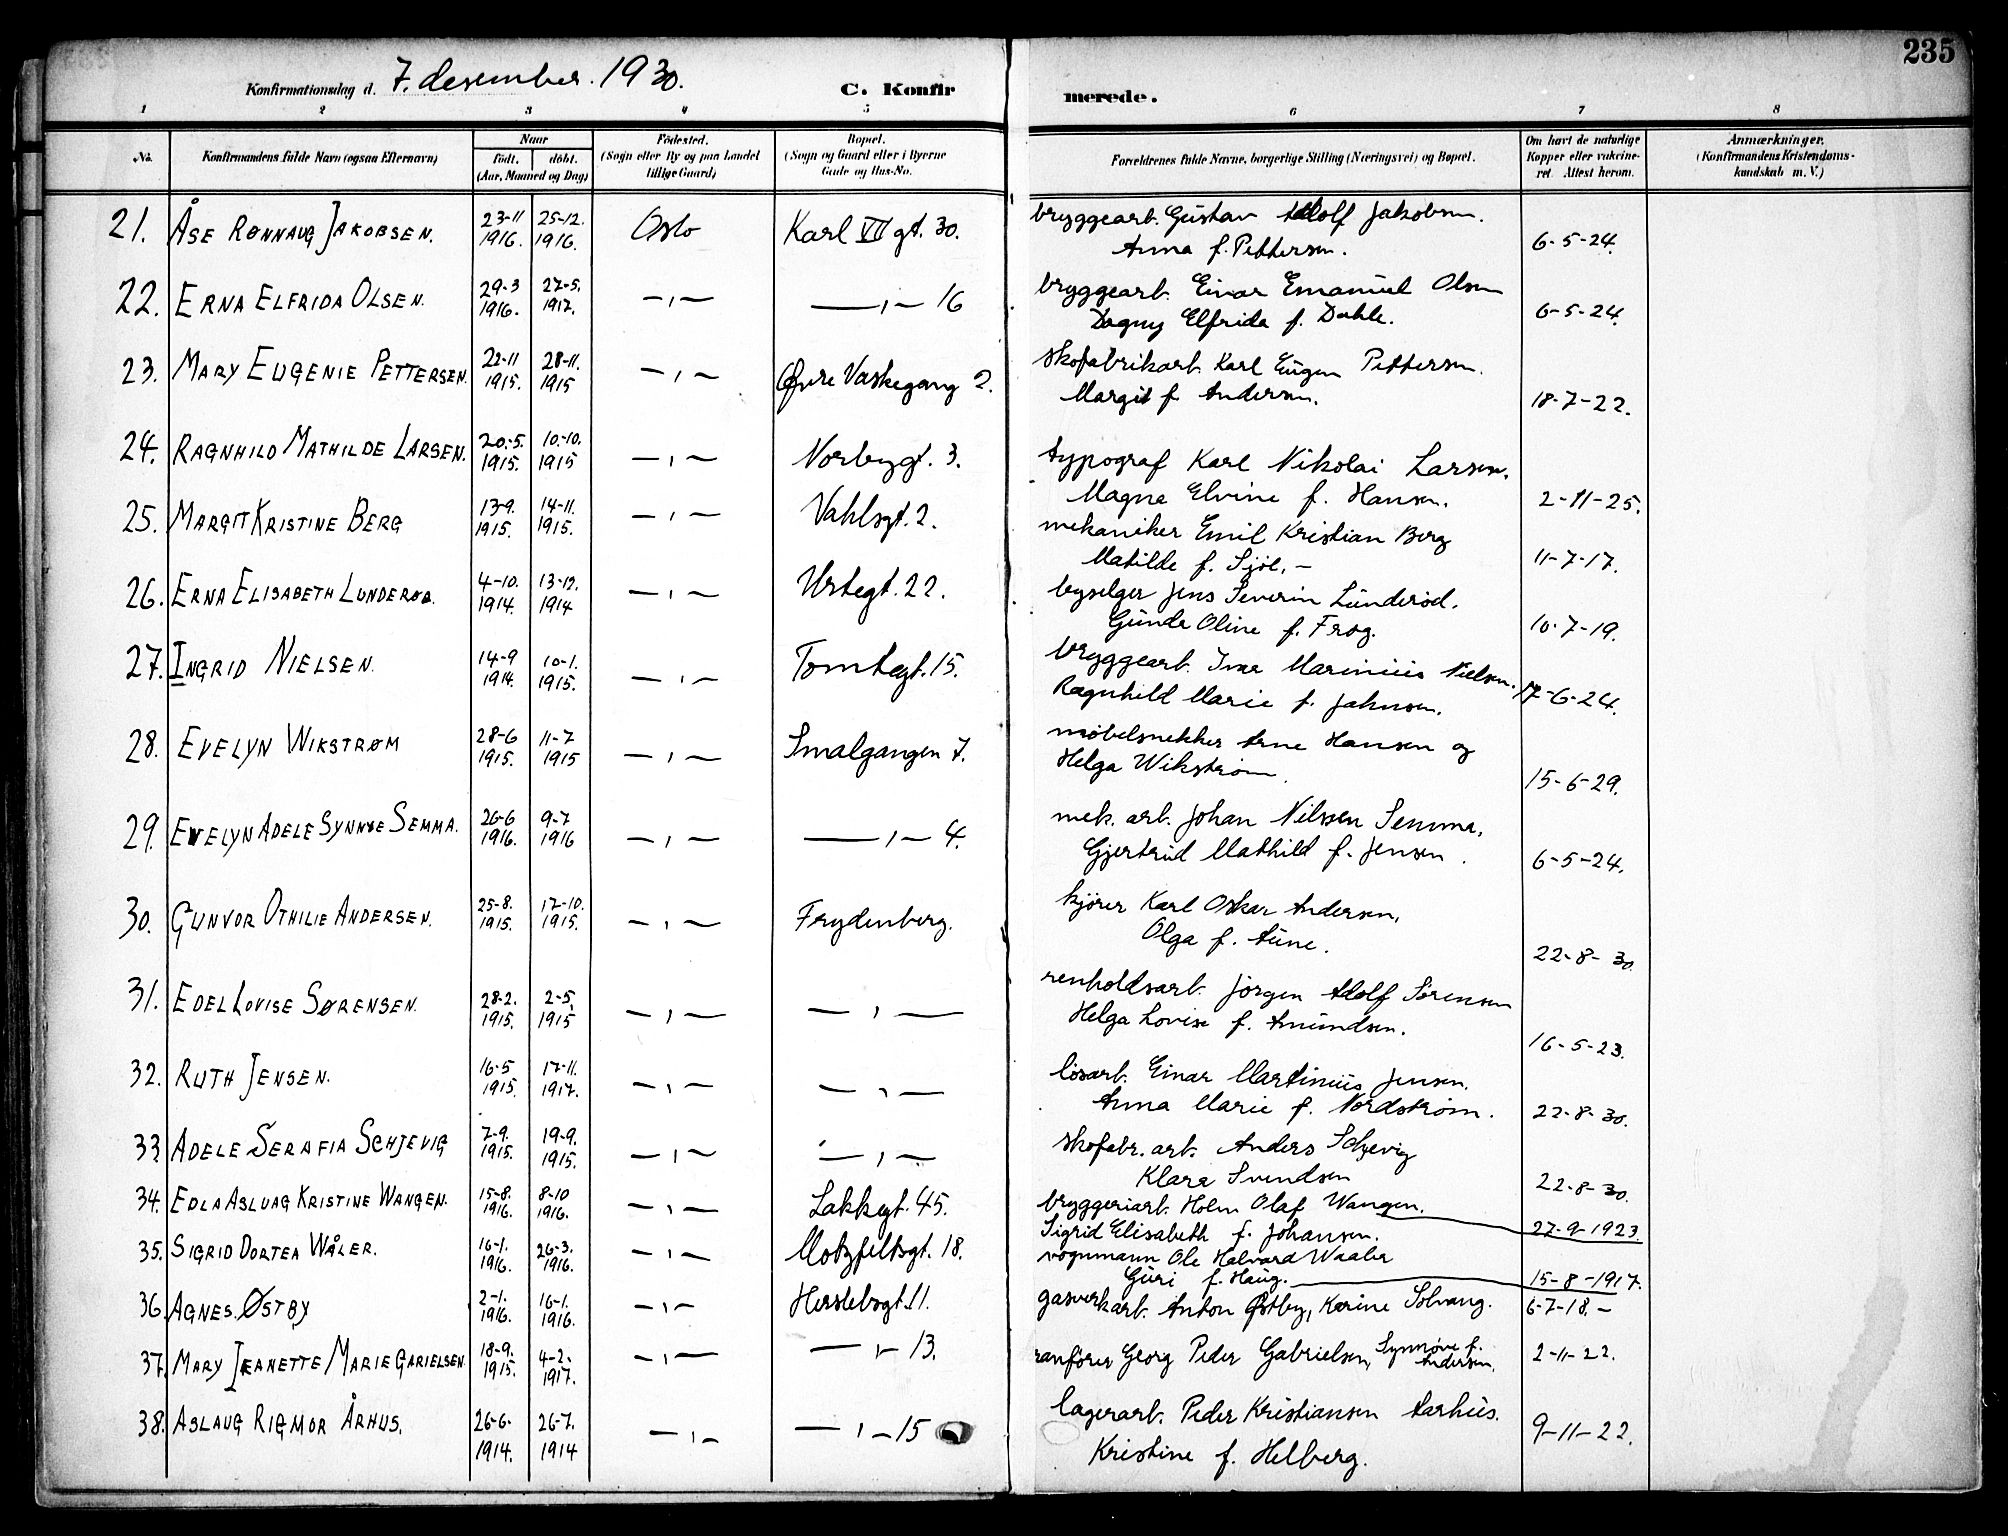 235
Konfirmationsdag d. 7. desember. 1930.
C. Konfirmerede.
1 2 3 4 5 6 7 8
No. Konfirmandens fulde Navn (ogsaa Efternavn) Naar født. døbt. (Aar, Maaned og Dag) Fødested. (Sogn eller By og paa Landet tillige Gaard) Bopæl. (Sogn og Gaard eller i Byerne Gade og Hus-No. Forældrenes fulde Navne, borgerlige Stilling (Næringsvei) og Bopæl. Om havt de naturlige Kopper eller vakcineret. Attest herom. Anmærkninger. (Konfirmandens Kristendomskundskab m. V.)
21. ÅSE RØNNAUG JAKOBSEN. 23-11 1916. 25-12. 1916. Oslo Karl XII gt. 30. bryggearb. Gustav Adolf Jakobsen.
Anna f. Pettersen. 6-5-24.
22. ERNA ELFRIDA OLSEN. 29-3 1916. 27-5. 1917. —„— —„— 16 bryggearb. Einar Emanuel Olsen
Dagny Elfrida f. Dahle. 6-5-24.
23. MARY EUGENIE PETTERSEN. 22-11 1915. 28-11. 1915 —„— Øvre Vaskegang 2. skofabrikarb. Karl Eugen Pettersen.
Margit f. Andersen. 18-7-22.
24. RAGNHILD MATHILDE LARSEN. 20.-5. 1915. 10.-10. 1915 —„— Norbygt. 3. typograf Karl Nikolai Larsen.
Magna Elvine f. Hansen. 2-11-25.
25. MARGIT KRISTINE BERG 13-9. 1915. 14-11. 1915. —„— Vahlsgt. 2. mekaniker Emil Kristian Berg
Matilde f. Sjöl. – 11-7-17.
26. ERNA ELISABETH LUNDERØD. 4-10. 1914. 13-12. 1914 —„— Urtegt. 22. byselger Jens Severin Lunderöd.
Gunda Oline f. Frog. 10-7-19.
27. INGRID NIELSEN. 14-9 1914. 10-1. 1915. —„— Tomtegt. 15. bryggearb. Ivar Marinius Nielsen.
Ragnhild Marie f. Jahnsen. 17-6-24.
28. EVELYN WIKSTRØM 28-6 1915. 11-7 1915 —„— Smalgangen 7. møbelsnekker Arne Hansen og
Helga Wikstrøm. 15-6-29.
29. EVELYN ADELE SYNNØE SEMMA. 26-6 1916. 9-7 1916 —„— —„— 4. mek. arb. Johan Nilssen Semma.
Gjertrud Mathild f. Jensen. 6-5-24.
30. GUNVOR OTHILIE ANDERSEN. 25-8. 1915. 17-10. 1915. —„— Frydenberg. kjörer Karl Oskar Andersen.
Olga f. Aune. 22-8-30.
31. EDEL LOVISE SØRENSEN. 28-2. 1915. 2-5. 1915 —„— —„— renholdsarb. Jörgen Adolf Sörensen
Helga Lovise f. Amundsen. 16-5-23.
32. RUTH JENSEN. 16-5 1915 17-11. 1917. —„— —„— lösarb. Einar Martinius Jensen.
Anna Marie f. Nordstrøm. 22-8-30.
33. ADELE SERAFIA SCHJEVIG 7-9. 1915. 19-9. 1915. —„— —„— skofabr. arb. Anders Schjevig
Klara Svendsen 22-8-30.
34. EDLA ASLUAG KRISTINE WANGEN. 15-8. 1916. 8-10 1916. —„— Lakkgt. 45. bryggeriarb. Holm Olaf Wangen.
Sigrid Elisabeth f. Johansen. 27-9-1923.
35. SIGRID DORTEA WÅLER. 16-1. 1916. 26-3. 1916. —„— Motzfeltsgt. 18. vognmann Ole Halvard Waaler
Guri f. Haug. 15-8-1917.
36. AGNES ØSTBY 2-1. 1916. 16-1. 1916. —„— Herslebsgt. 11. gasverkarb. Anton Østby, Karine Solvang. 6-7-18. –
37. MARY JEANETTE MARIE GARIELSEN. 18-9. 1915. 4-2. 1917. —„— —„— 13. Georg Peder Gabrielsen, Synnöve f. Andersen. 2-11-22.
38. ASLAUG RIGMOR ÅRHUS. 26-6. 1914. 26-7. 1914 —„— —„— 15 lagerarb. Peder Kristiansen Aarhus.
Kristine f. Helberg. 9-11-22.